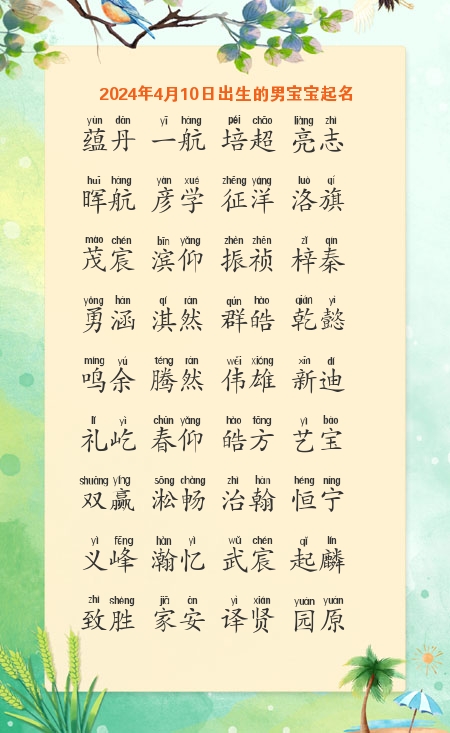 2024年4月10日出生的男宝宝起名
yùn dān yī háng péi chāo liàng zhì
蕴丹 一航 培超 亮志
huī háng yàn xué zhēng yáng luò qí
晖航 彦学 征洋 洛旗
mào chén bīn yǎng zhèn zhēn zǐ qín
茂宸 滨仰 振祯 梓秦
yǒng hán qí rán qún hào qián yì
勇涵 淇然 群皓 乾懿
míng yú téng rán wěi xióng xīn dí
鸣余 腾然 伟雄 新迪
lǐ yì chūn yǎng hào fāng yì bǎo
礼屹 春仰 皓方 艺宝
shuāng yíng sōng chàng zhì hàn héng níng
双赢 淞畅 治翰 恒宁
yì fēng hàn yì wǔ chén qǐ lín
义峰 瀚忆 武宸 起麟
zhì shèng jiā ān yì xián yuán yuán
致胜 家安 译贤 园原